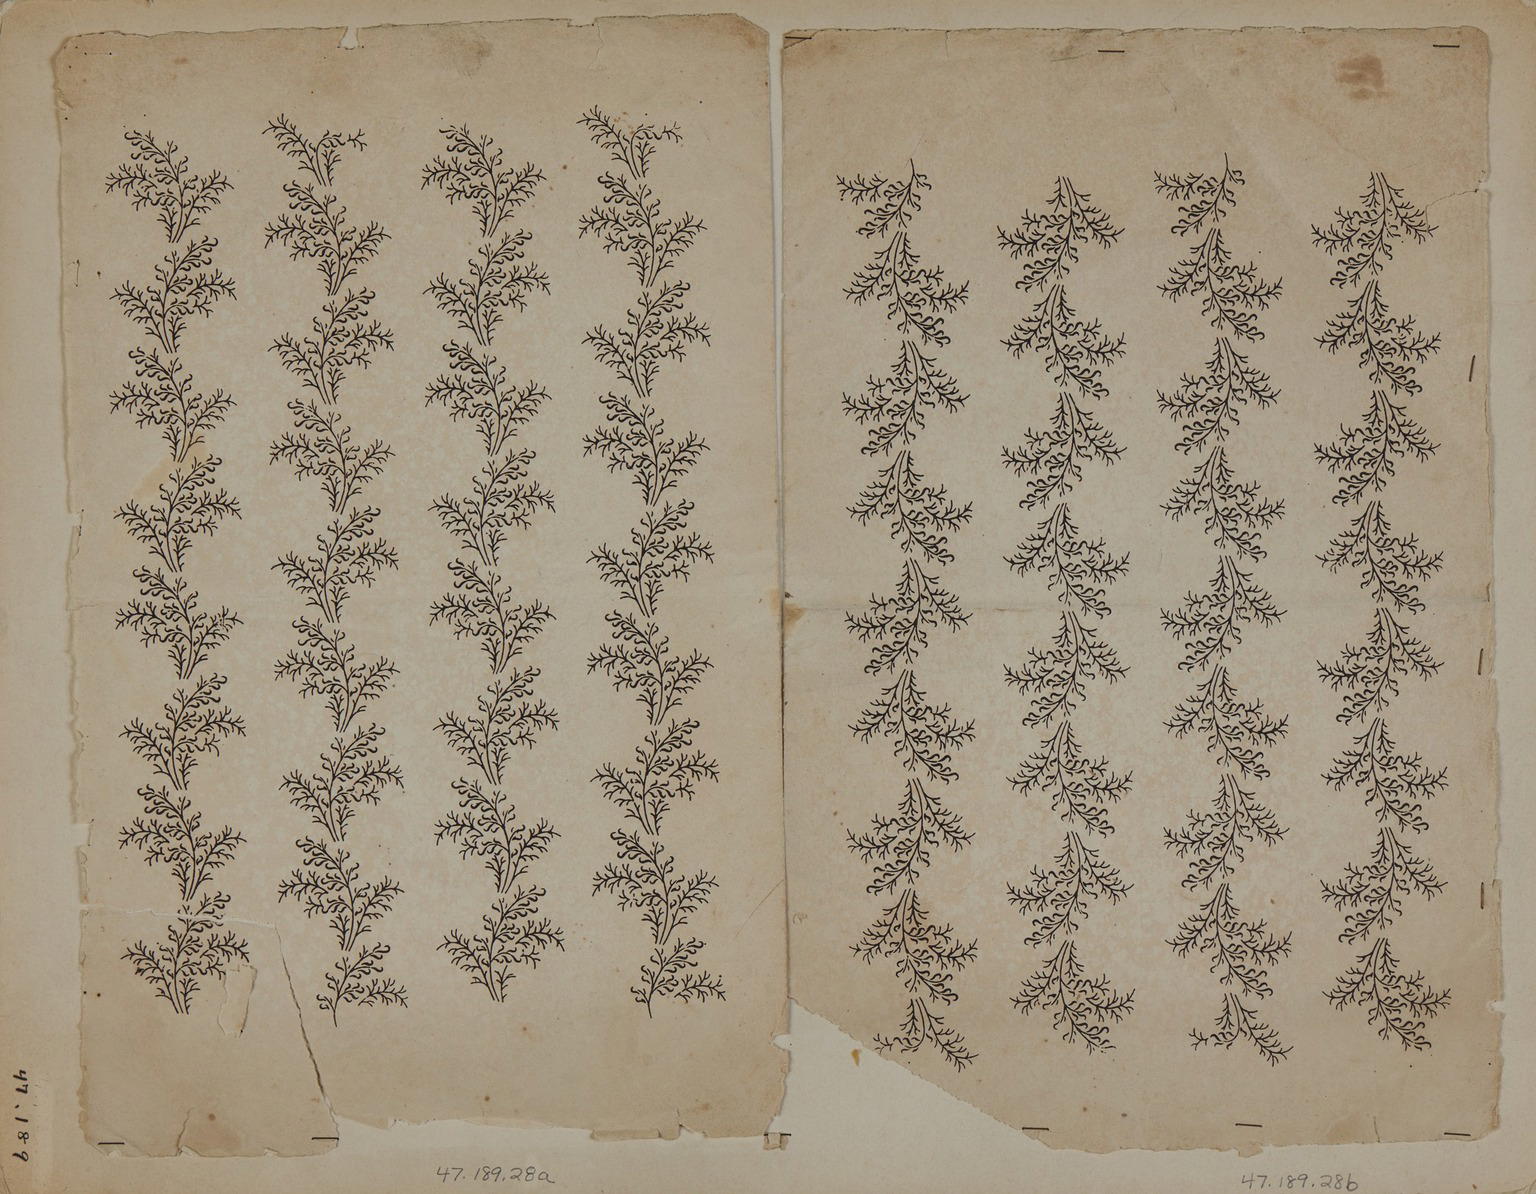 47.189
47.189.28a
47.189.28b